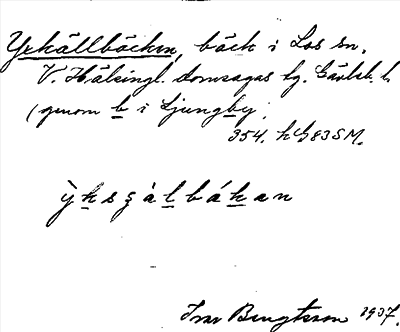 Yxkällbäcken, bäck i Los sn,
V. Hälsingl. domsagas tg. Gävleb. l.
(genom b i Ljungby,
354. h G 83 SM.
ỳksɕàlbákan
Ivar Bengtsson 1937.